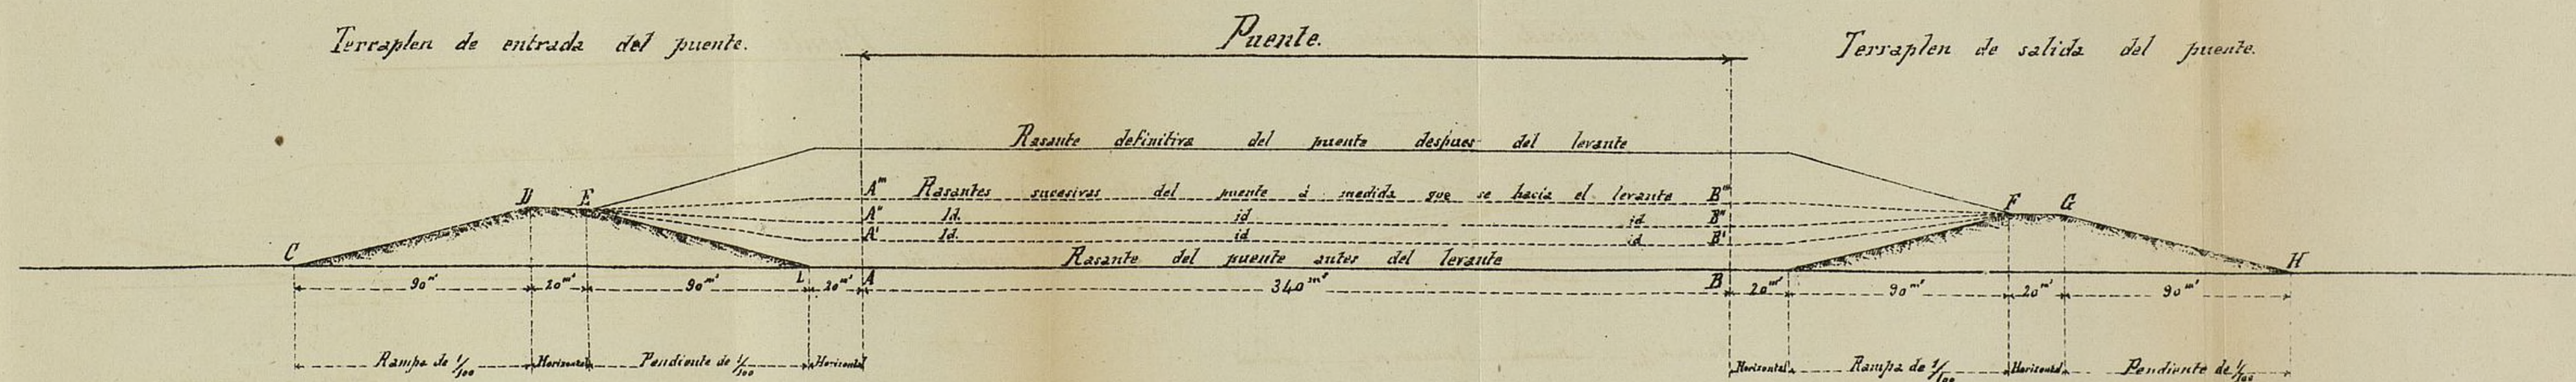 Terraplen de entrada del puente.
Puente.
Terraplen de salida del puente.
Rasante definitiva del puente despues del levante
A''' Rasantes sucesivas del puente á medida que se hacía el levante B'''
A'' Id. id id B''
A' Id. id id B'
Rasante del puente antes del levante
D E
F G
C
L A
B
H
90m' 20m' 90m' 20m' 340m' 20m' 90m' 20m' 90m'
Rampa de 1/100 Horizontal Pendiente de 1/100 Horizontal
Horizontal Rampa de 1/100 Horizontal Pendiente de 1/100